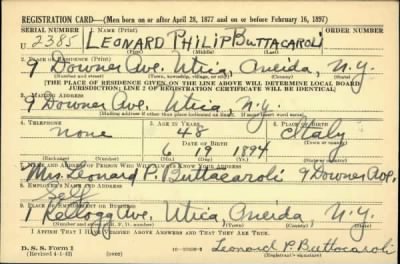 REGISTRATION CARD—(Men born on or after April 28, 1877 and on or before February 16, 1897)
SERIAL NUMBER 1. NAME (Print)
U 2385 LEONARD PHILIP BUTTACAROLI
9 Downer Ave. Utica, Oneida, N.Y.
2. PLACE OF RESIDENCE (Print)
(Number and street) (Town, township, village, or city) (County) (State)
[THE PLACE OF RESIDENCE GIVEN ON THE LINE ABOVE WILL DETERMINE LOCAL BOARD
JURISDICTION; LINE 2 OF REGISTRATION CERTIFICATE WILL BE IDENTICAL]
3. MAILING ADDRESS
9 Downer Ave. Utica, N.Y.
[Mailing address if other than place indicated on line 2. If same insert word same]
4. TELEPHONE 5. AGE IN YEARS 6. PLACE OF BIRTH
none 48 Italy
DATE OF BIRTH
6 19 1894
(Exchange) (Number) (Mo.) (Day) (Yr.) (State or country)
7. NAME AND ADDRESS OF PERSON WHO WILL ALWAYS KNOW YOUR ADDRESS
Mrs. Leonard P. Buttacaroli 9 Downer Ave.
8. EMPLOYER'S NAME AND ADDRESS
Self
9. PLACE OF EMPLOYMENT OR BUSINESS
1 Kellogg Ave. Utica, Oneida, N.Y.
(Number and street or R. F. D. number) (Town) (County) (State)
I AFFIRM THAT I HAVE VERIFIED ABOVE ANSWERS AND THAT THEY ARE TRUE.
D. S. S. Form 1
(Revised 4-1-42) Leonard P. Buttacaroli
(Registrant's signature)